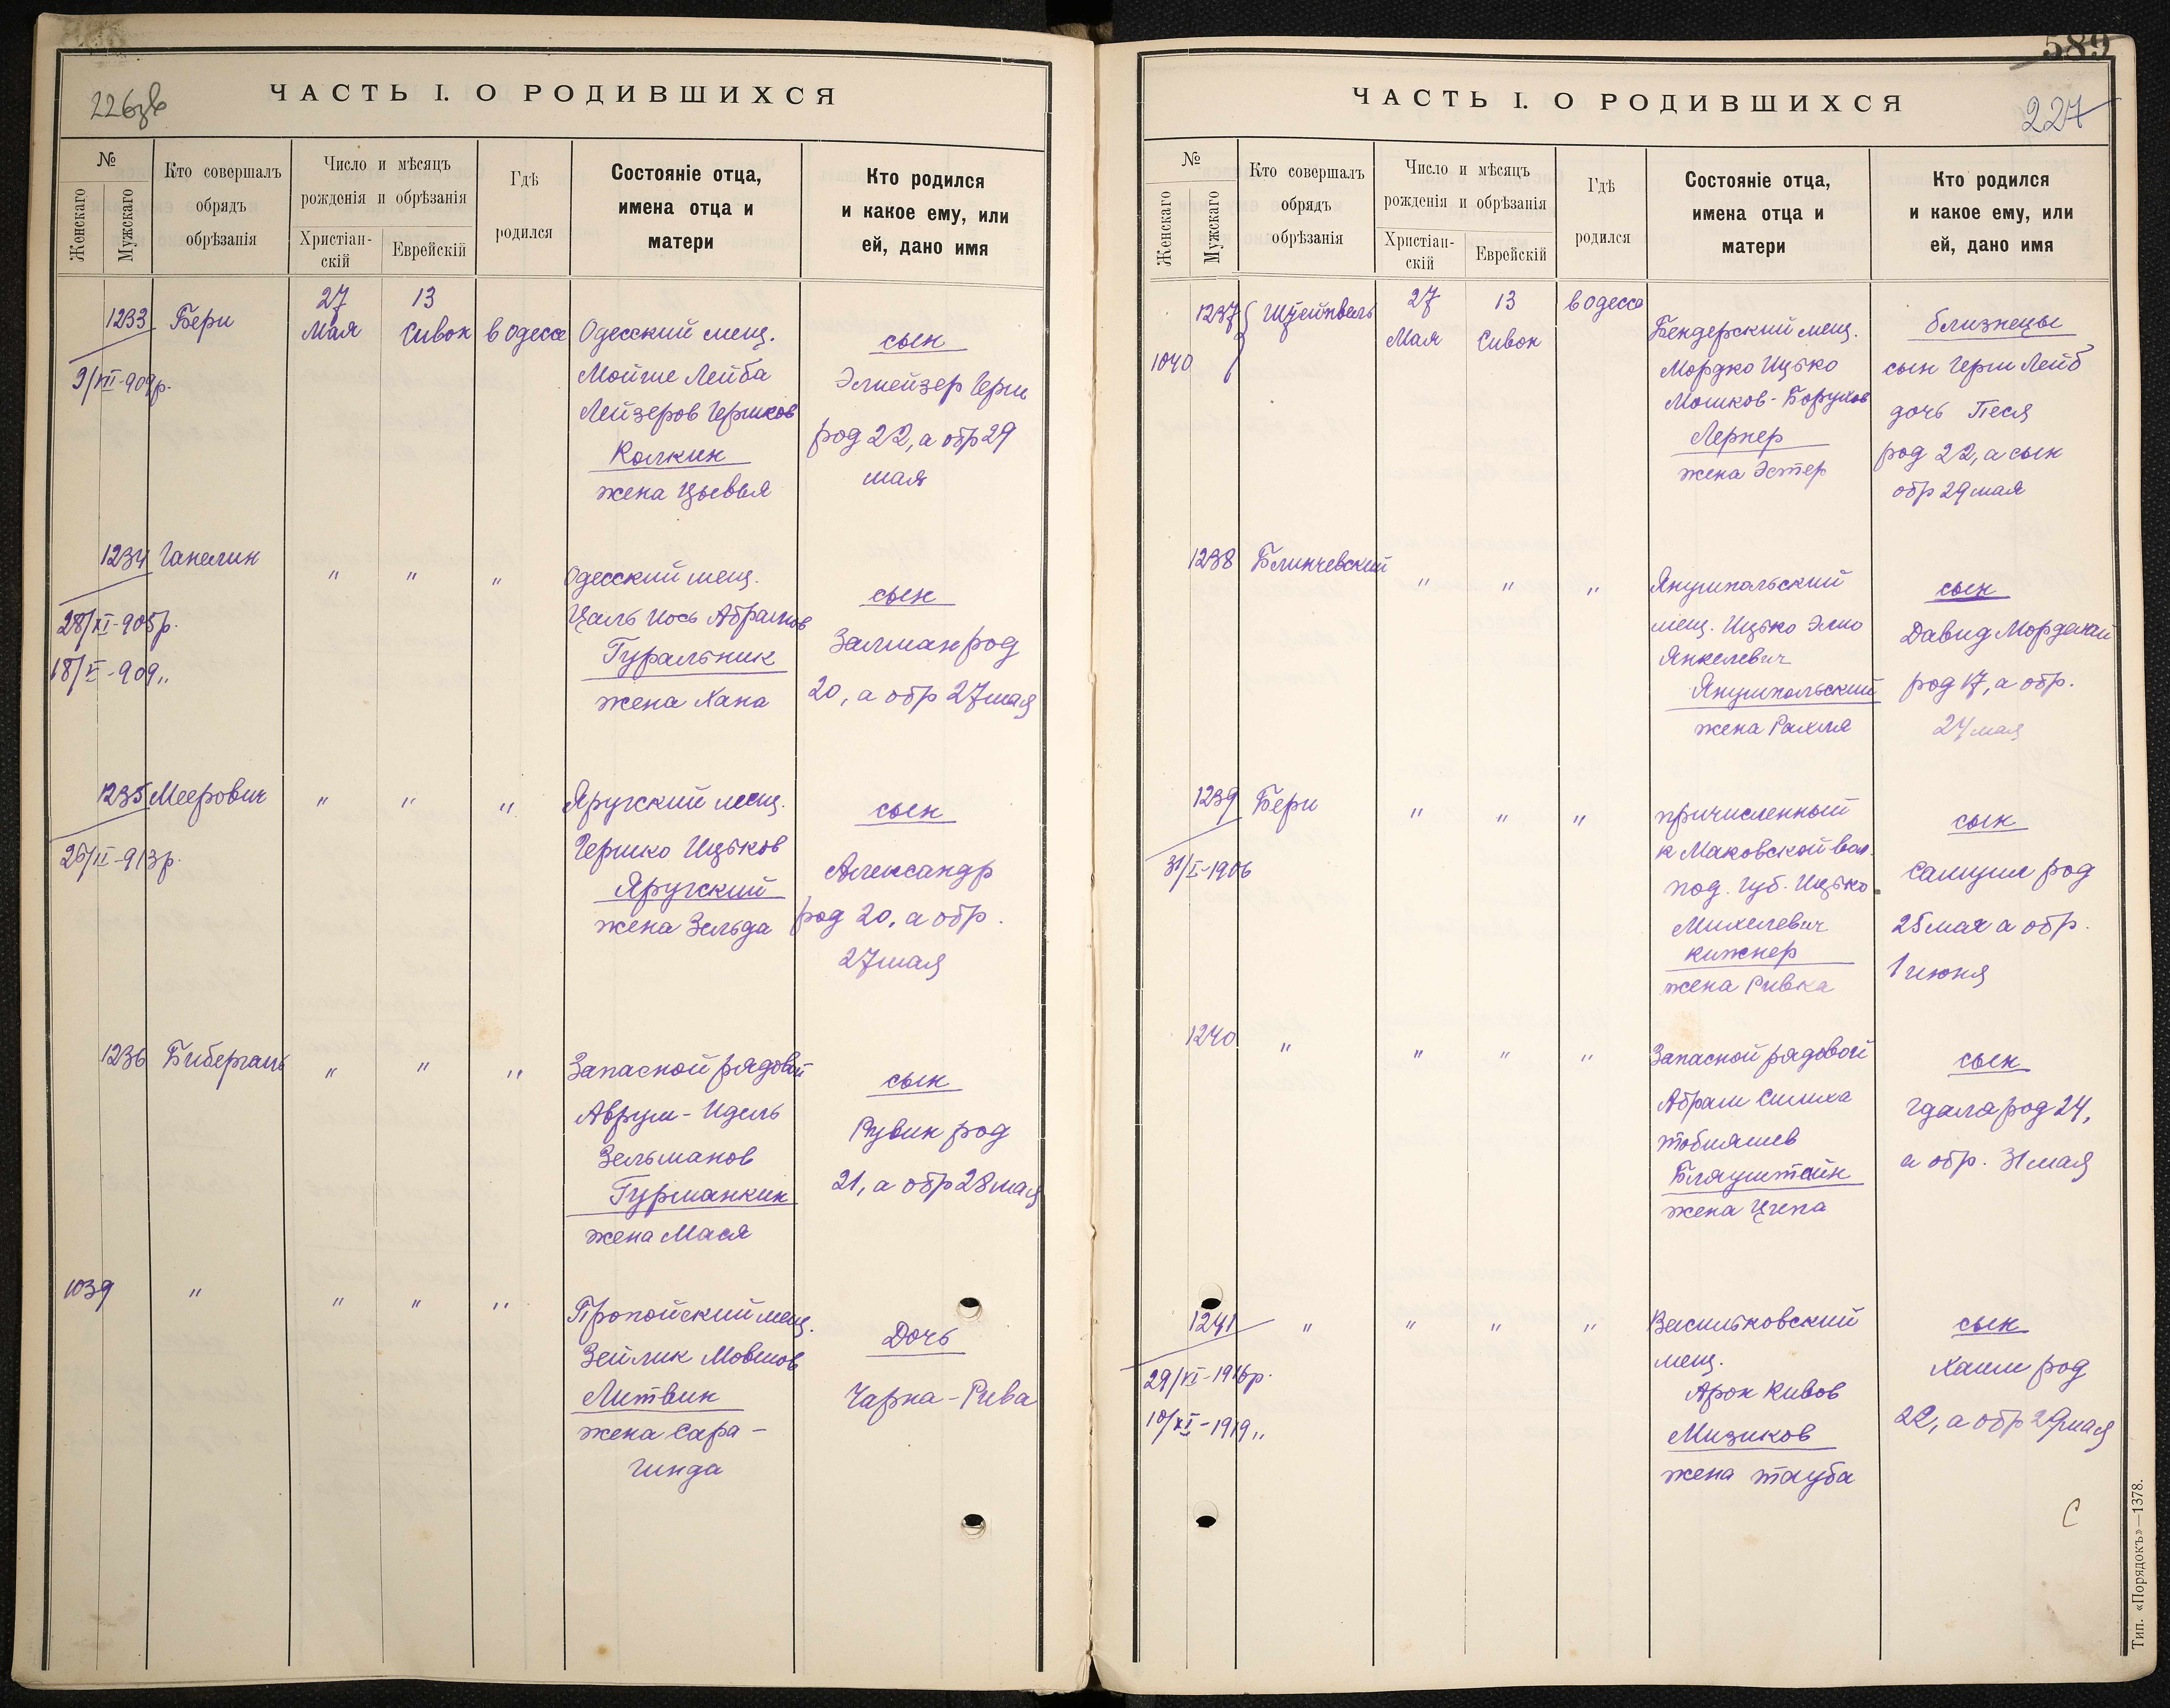 226зв
ЧАСТЬ I. О РОДИВШИХСЯ
№
Женскаго
Мужскаго
Кто совершалъ
обрядъ
обрѣзанія
Число и мѣсяцъ
рожденія и обрѣзанія
Христіан-
скій
Еврейскій
Гдѣ
родился
Состояніе отца,
имена отца и
матери
Кто родился
и какое ему, или
ей, дано имя
1233
9/XII-909р.
Бери
27
Мая
13
Сивон
в Одессе
Одесский мещ.
Мойше Лейба
Лейзеров Гершков
Колкин
жена Цывья
сын
Элиейзер Герш
род 22, а обр 29
мая
1234
28/XI-905р.
18/V-909"
Ганелин
"
"
"
Одесский мещ.
Цаль Иось Абрамов
Гуральник
жена Хана
сын
Залман род
20, а обр 27 мая
1235
25/II-913р.
Меерович
"
"
"
Яругский мещ.
Гершко Ицьков
Яругский
жена Зельда
сын
Александр
род 20, а обр.
27 мая
1236
Бибергаль
"
"
"
Запасной рядовой
Аврум-Идель
Зельманов
Гурманкин
жена Мася
сын
Рувин род
21, а обр 28 мая
1039
"
"
"
"
Пропойский мещ.
Зейлик Мовшов
Литвин
жена Сара-
Гинда
Дочь
Чарна-Рива
589
ЧАСТЬ I. О РОДИВШИХСЯ
227
№
Женскаго
Мужскаго
Кто совершалъ
обрядъ
обрѣзанія
Число и мѣсяцъ
рожденія и обрѣзанія
Христіан-
скій
Еврейскій
Гдѣ
родился
Состояніе отца,
имена отца и
матери
Кто родился
и какое ему, или
ей, дано имя
1237
1040
27
Мая
13
Сивон
в Одессе
Бендерский мещ.
Мордко Ицько
Мошков-Борухов
Лернер
жена Эстер
близнецы
сын Герш Лейб
дочь Песя
род 22, а сын
обр 29 мая
1238
Блинчевский
"
"
"
Янушпольский
мещ. Ицько Элио
Янкелевич
Янушпольский
жена Рахиля
сын
Давид Мордехай
род 17, а обр.
24 мая
1239
31/I-1906
Бери
"
"
"
причисленный
к Маковской вол.
под. губ. Ицько
Михелевич
Кижнер
жена Ривка
сын
Самуил род
25 мая а обр.
1 июня
1240
"
"
"
"
Запасной рядовой
Абрам Симха
Тобияшев
Блауштейн
жена Ципа
сын
Гдаля род 24,
а обр. 31 мая
1241
29/VI-1916р.
10/XI-1919"
"
"
"
"
Васильковский
мещ.
Арон Кивов
Мизиков
жена Тауба
сын
Хаим род
22, а обр 29 мая
С
Тип. «Порядокъ»—1378.